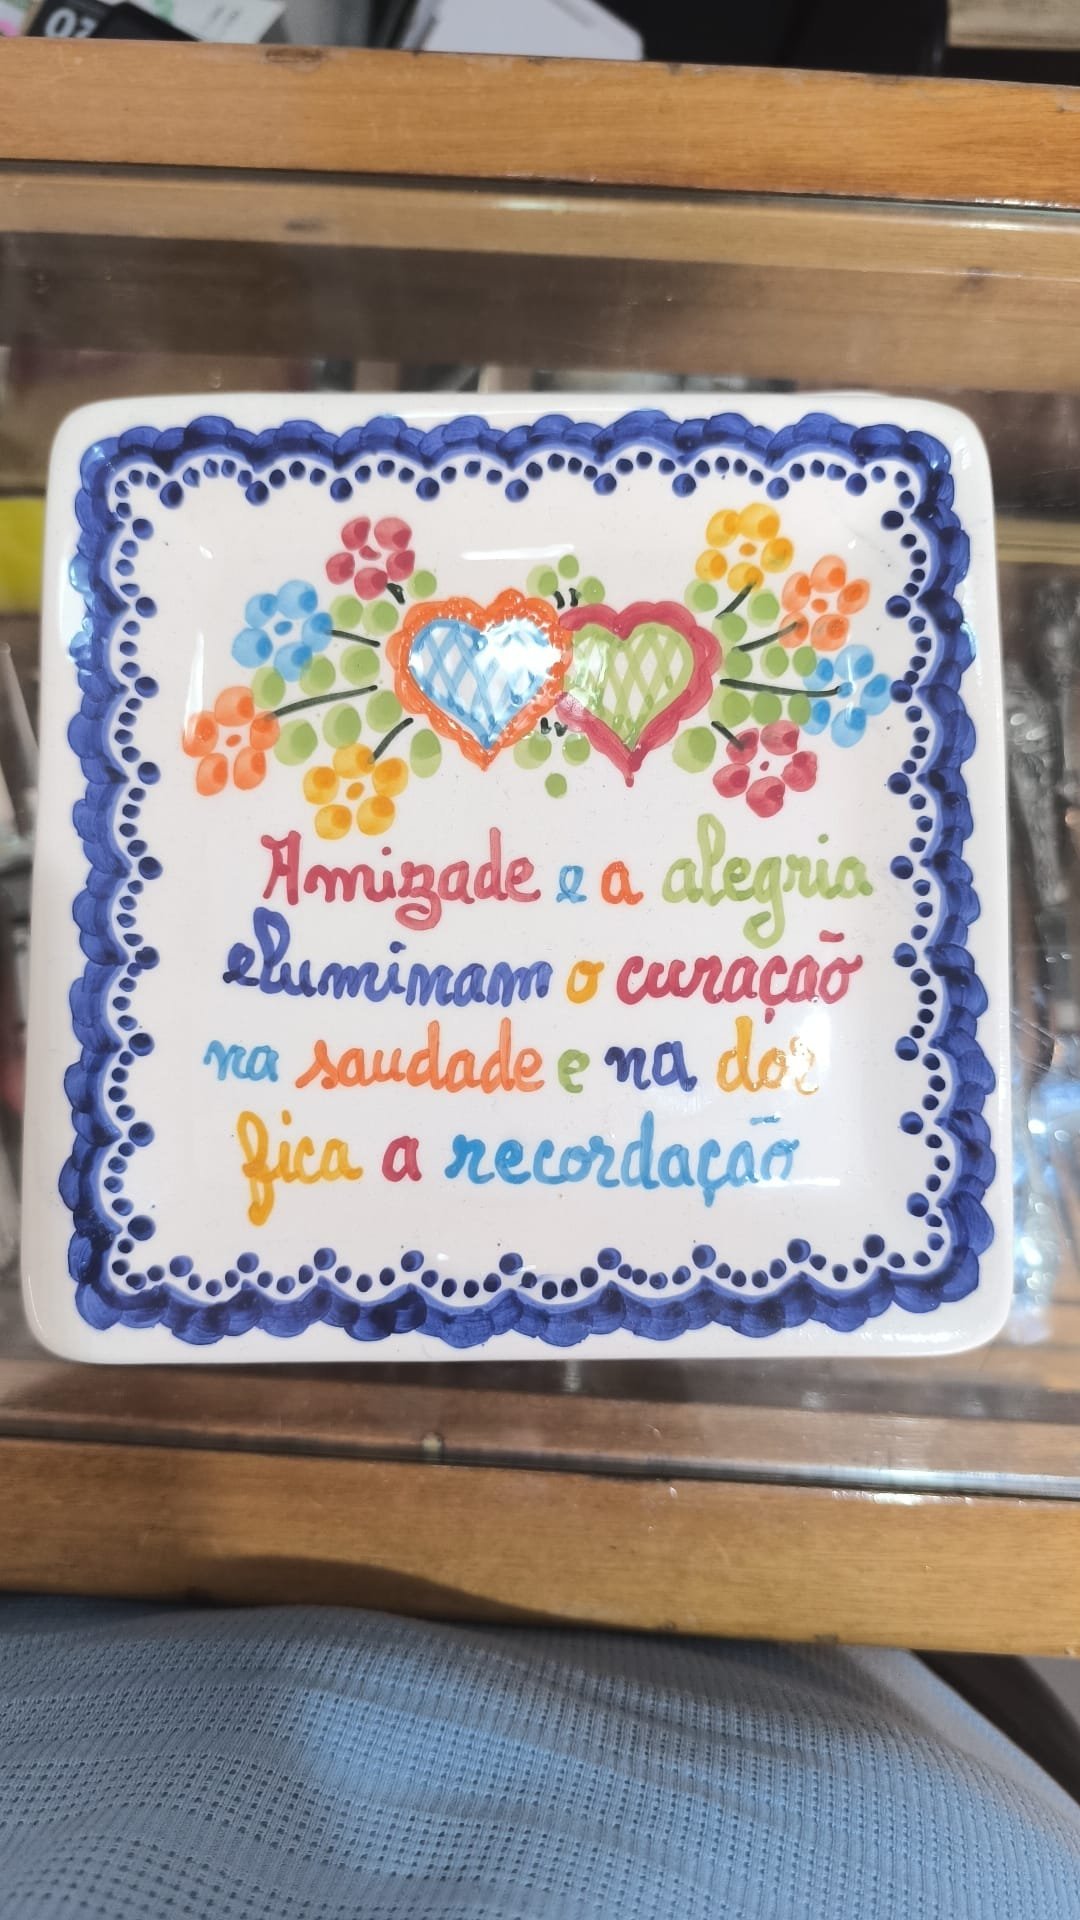 02
Amizade e a alegria
eluminam o curação
na saudade e na dor
fica a recordação